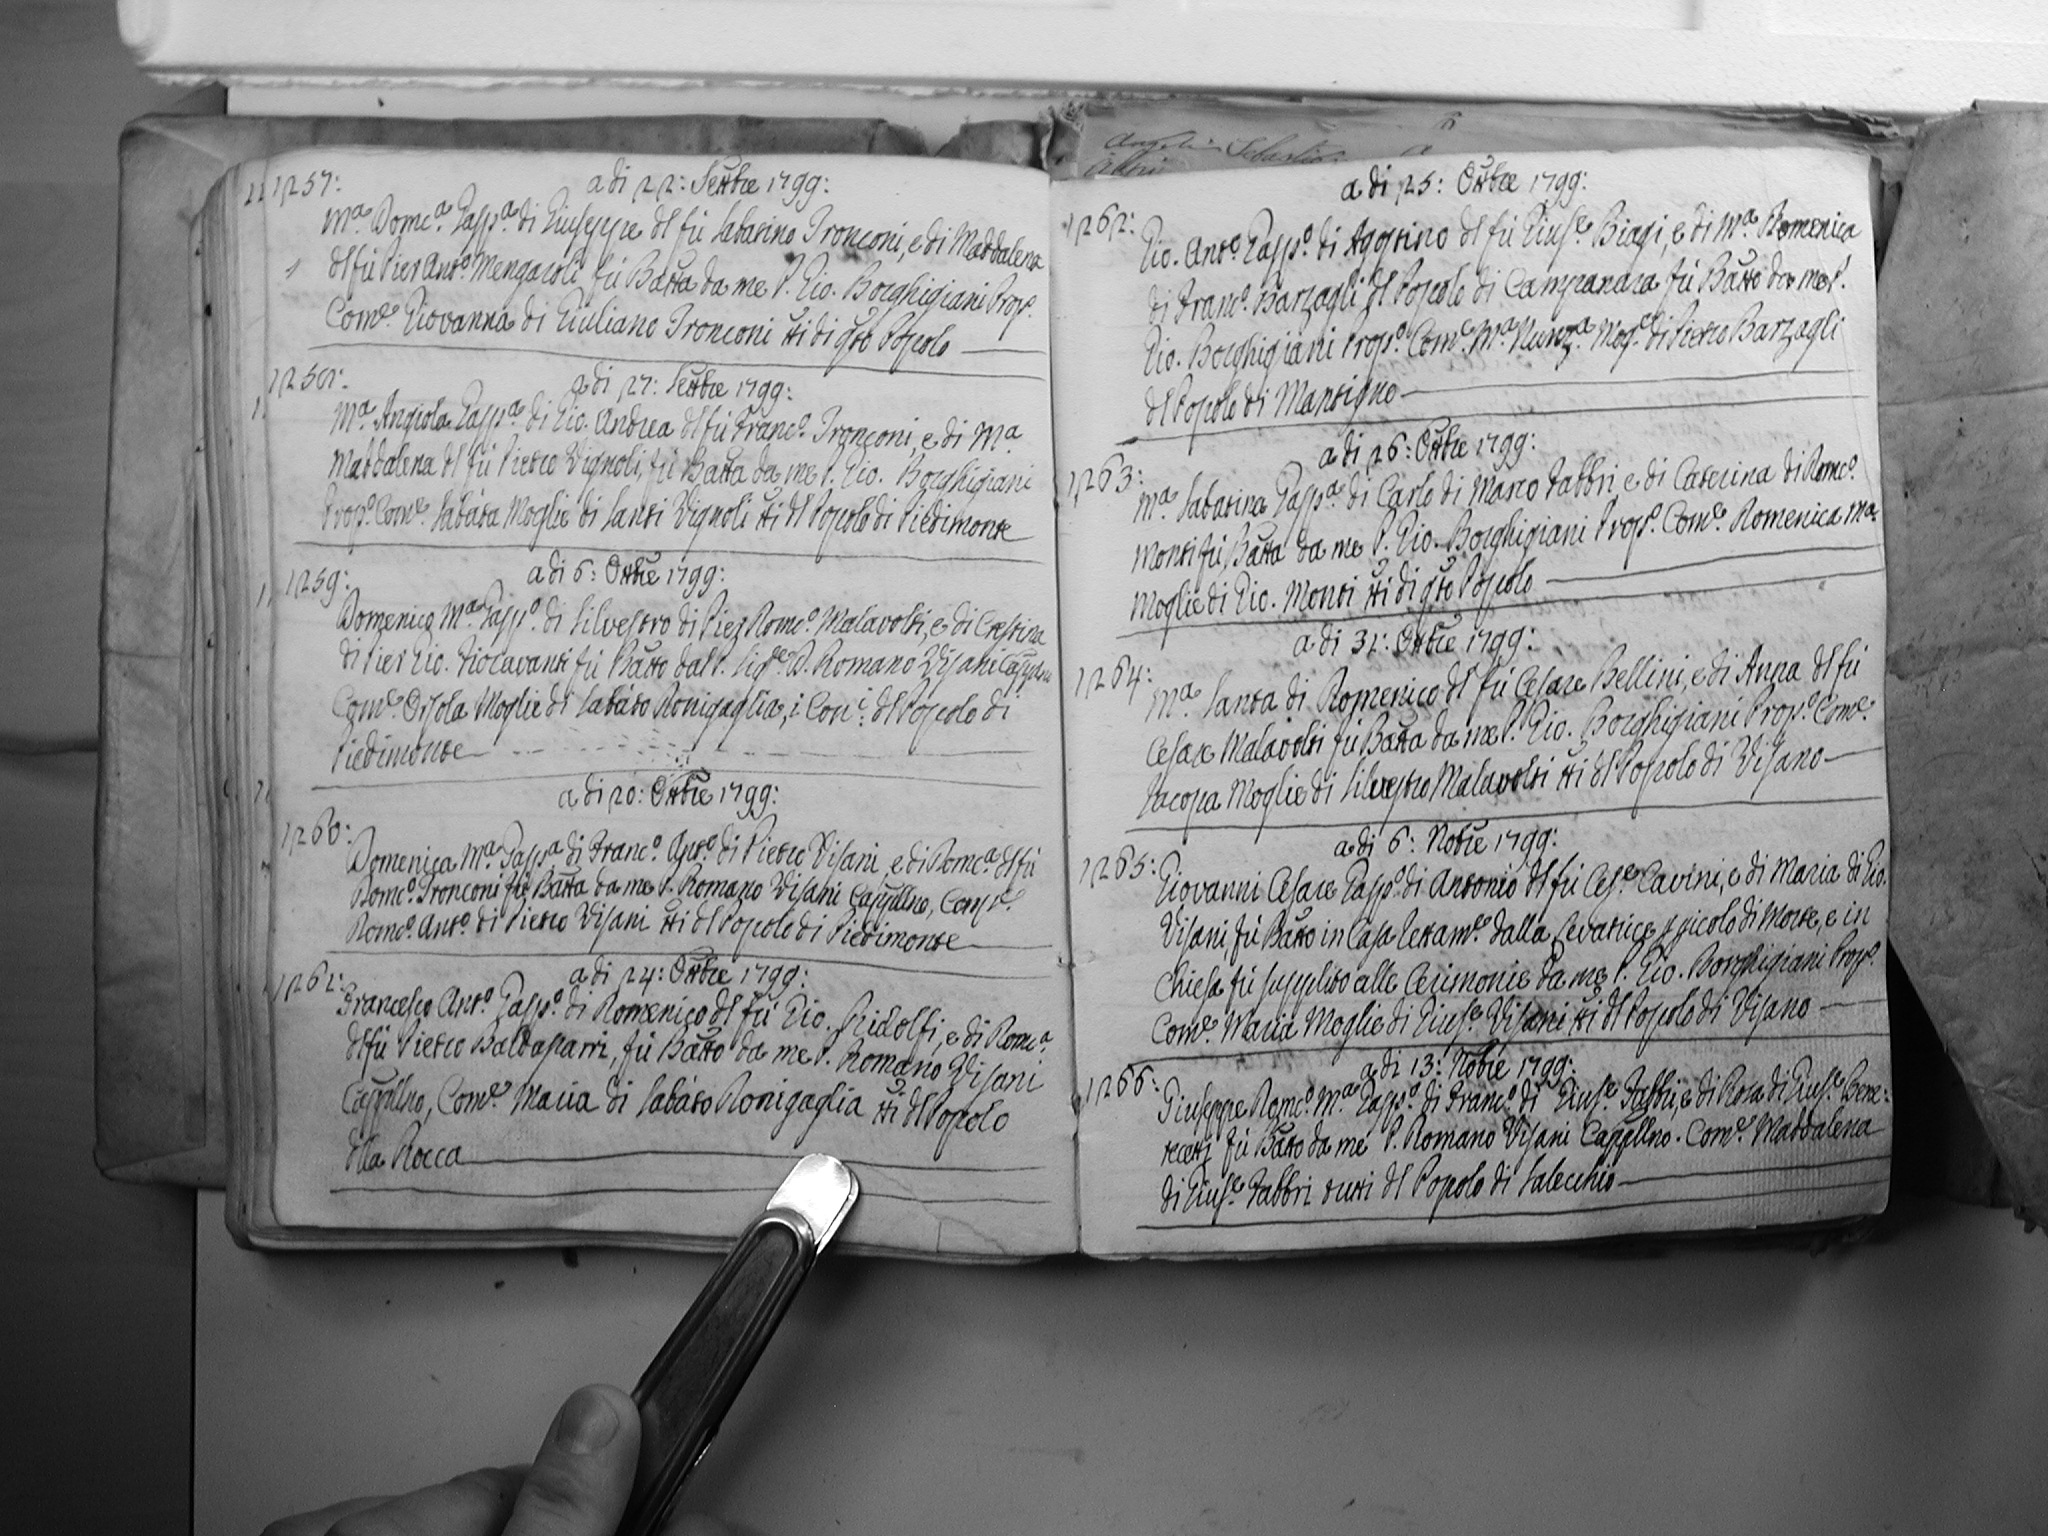 1257:
a di 22: Settbre 1799:
Ma. Domca. Gaspa. di Giuseppe dl fù Sabatino Tronconi, e di Maddalena
dl fù Pier Anto. Mengazoli fù Batta da me P. Gio. Borghigiani Propo.
Come. Giovanna di Giuliano Tronconi tti di qto Popolo
1258:
a di 27: Settbre 1799:
Ma. Angiola Gaspa. di Gio. Andrea dl fù Franco. Tronconi, e di Ma.
Maddalena dl fù Pietro Vignoli, fù Batta da me P. Gio. Borghigiani
Propo. Come. Sabata Moglie di Santi Vignoli tti dl Popolo di Piedimonte
1259:
a di 6: Ottbre 1799:
Domenico Ma. Gaspo. di Silvestro di Pier Domco. Malavolti, e di Crestina
di Pier Gio. Diolavanti fù Batto dal P. Sige. D. Romano Visani Cappllno
Come. Orsola Moglie di Sabato Ronigaglia, i Coni. dl Popolo di
Piedimonte
1260:
a di 20: Ottbre 1799:
Domenica Ma. Gaspa. di Franco. Anto. di Pietro Visani, e di Domca. dl fù
Domco. Tronconi fù Batta da me P. Romano Visani Cappllno, Compe.
Domco. Anto. di Pietro Visani tti dl Popolo di Piedimonte
1261:
a di 24: Ottbre 1799:
Francesco Anto. Gaspo. di Domenico dl fù Gio. Ridolfi, e di Domca.
dl fù Pietro Baldasarri, fù Batto da me P. Romano Visani
Cappllno, Come. Maria di Sabato Ronigaglia tti dl Popolo
dlla Rocca
a di 25: Ottbre 1799:
1262:
Gio. Anto. Gaspo. di Agostino dl fù Giuse. Biagi, e di Ma. Domenica
di Franco. Barzagli dl Popolo di Campanara fù Batto da me P.
Gio. Borghigiani Propo. Come. Ma. Nunza. Moge. di Pietro Barzagli
dl Popolo di Mantigno
a di 26: Ottbre 1799:
1263:
Ma. Sabatina Gaspa. di Carlo di Marco Fabbri e di Caterina di Domco.
Monti fù Batta da me P. Gio. Borghigiani Propo. Come. Domenica Ma.
Moglie di Gio. Monti tti di qto Popolo
a di 31: Ottbre 1799:
1264:
Ma. Santa di Domenico dl fù Cesare Bellini, e di Anna dl fù
Cesare Malavolti fù Batta da me P. Gio. Borghigiani Propo. Come.
Jacopa Moglie di Silvestro Malavolti tti dl Popolo di Visano
a di 6: Nobre 1799:
1265:
Giovanni Cesare Gaspo. di Antonio dl fù Cese. Cavini, e di Maria di Gio.
Visani, fù Batto in Casa lettame. dalla Levatrice p picolo di Morte, e in
Chiesa fù supplito alle Cerimonie da me P. Gio. Borghigiani Propo.
Come. Maria Moglie di Giuse. Visani tti dl Popolo di Visano
a di 13: Nobre 1799:
1266:
Giuseppe Domco. Ma. Gaspo. di Franco. di Giuse. Fabbri, e di Rosa di Giuse. Bene:
recetti fù Batto da me P. Romano Visani Cappllno. Come. Maddalena
di Giuse. Fabbri tutti dl Popolo di Salecchio